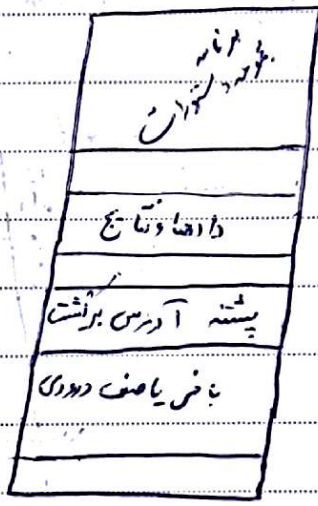 برنامه
مجموعه دستورات
داده‌ها و نتایج
پشته آدرس برگشت
بافر یا صف ورودی